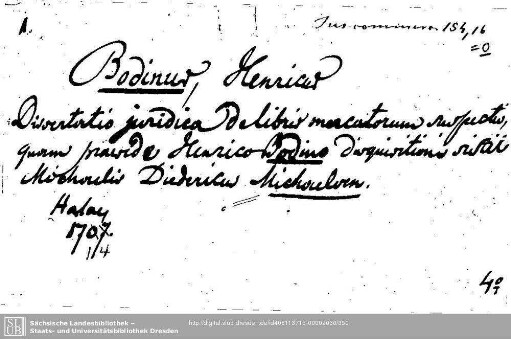 A.
Jus commune 154,16
=0
Bodinus, Henricus
Dissertatio juridica de libris mercatorum suspectis,
quam praeside Henrico Bodino disquisitioni
Michaelis Diedericus Michaelsen.
Halae
1707.
1/4
4°
SLUB
Sächsische Landesbibliothek –
Staats- und Universitätsbibliothek Dresden